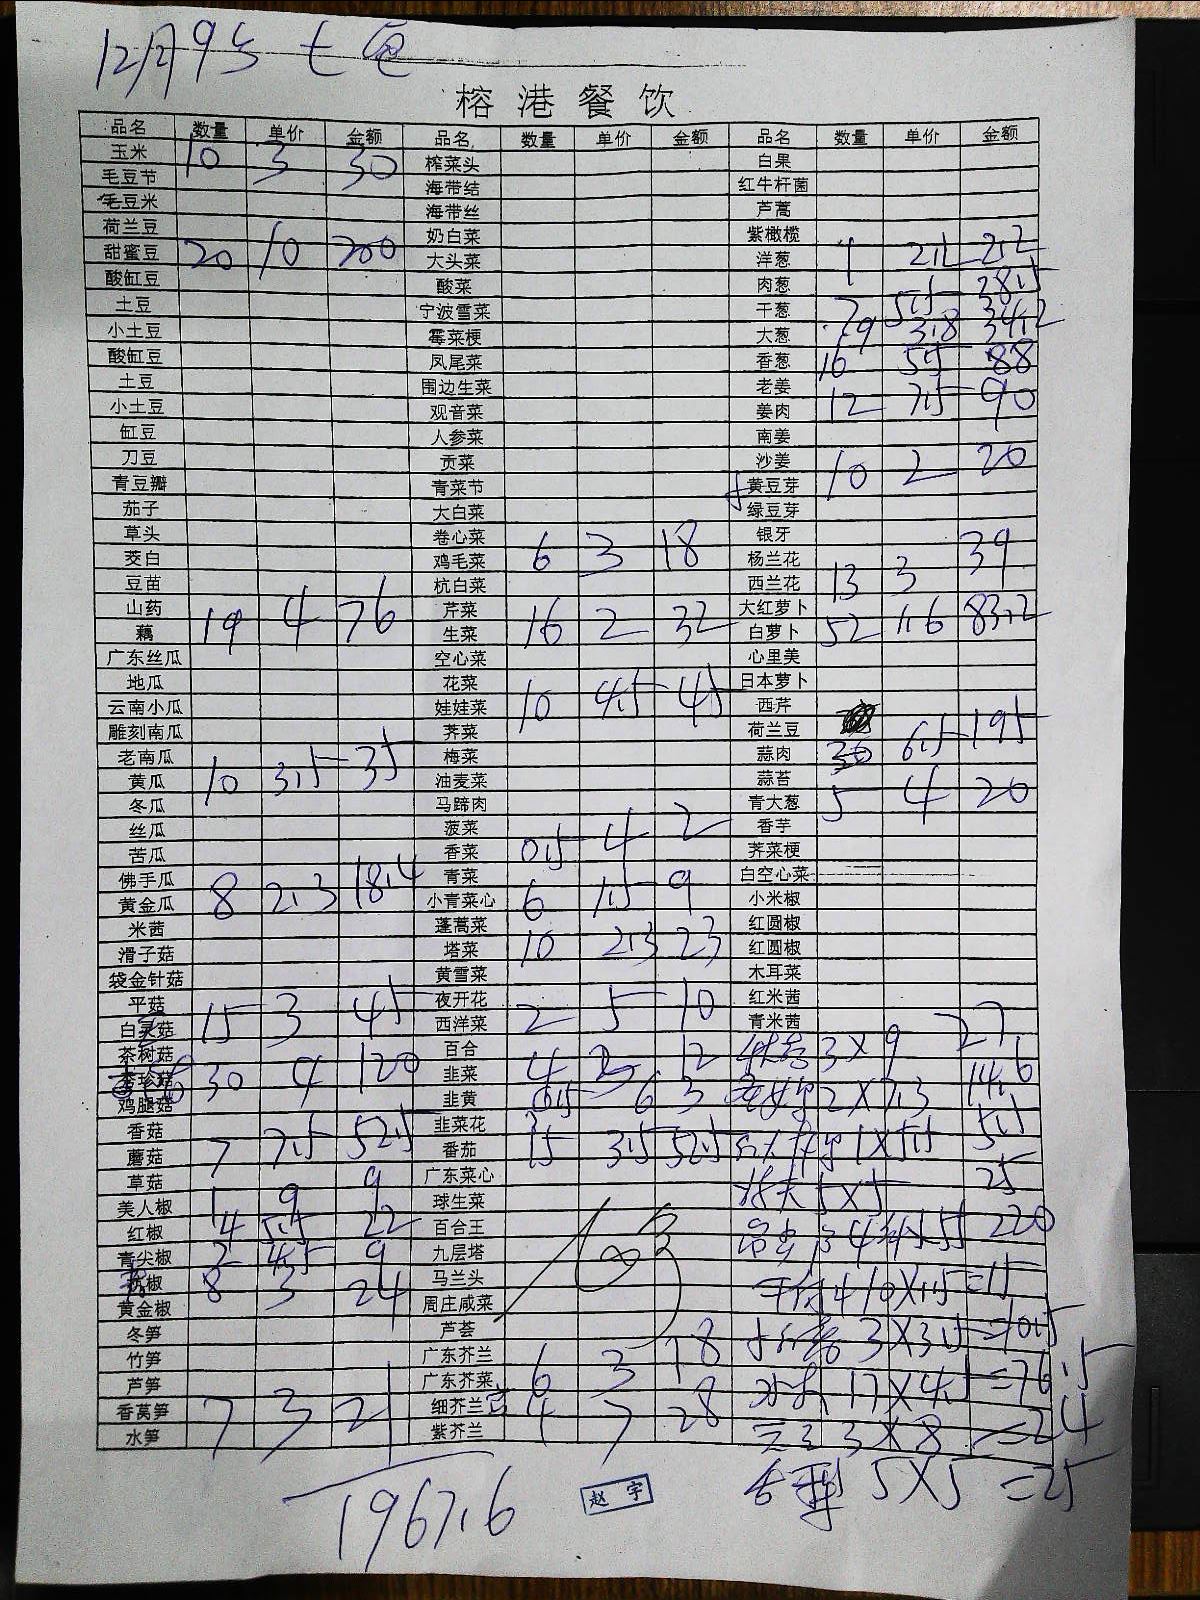 12月9号
榕港餐饮
品名 数量 单价 金额 品名 数量 单价 金额 品名 数量 单价 金额
玉米 10 3 30 榨菜头 白果
毛豆节 海带结 红牛杆菌
毛豆米 海带丝 芦蒿
荷兰豆 奶白菜 紫橄榄
甜蜜豆 20 10 200 大头菜 洋葱 1 2.2 2.2
酸缸豆 酸菜 肉葱 5.5 28.5
土豆 宁波雪菜 干葱
小土豆 霉菜梗 大葱 9 3.8 34.2
酸缸豆 凤尾菜 香葱 16 5.5 88
土豆 围边生菜 老姜
小土豆 观音菜 姜肉 12 7.5 90
缸豆 人参菜 南姜
刀豆 贡菜 沙姜
青豆瓣 青菜节 黄豆芽 10 2 20
茄子 大白菜 绿豆芽
草头 卷心菜 银牙
茭白 鸡毛菜 6 3 18 杨兰花
豆苗 杭白菜 西兰花 13 3 39
山药 芹菜 大红萝卜
藕 19 4 76 生菜 16 2 32 白萝卜 52 1.6 83.2
广东丝瓜 空心菜 心里美
地瓜 花菜 日本萝卜
云南小瓜 娃娃菜 10 4.5 45 西芹
雕刻南瓜 荠菜 荷兰豆
老南瓜 梅菜 蒜肉 30 6.5 195
黄瓜 10 3.5 35 油麦菜 蒜苔
冬瓜 马蹄肉 青大葱 5 4 20
丝瓜 菠菜 香芋
苦瓜 香菜 0.5 4 2 荠菜梗
佛手瓜 青菜 白空心菜
黄金瓜 8 2.3 18.4 小青菜心 6 1.5 9 小米椒
米茜 蓬蒿菜 红圆椒
滑子菇 塔菜 10 2.3 23 红圆椒
袋金针菇 黄雪菜 木耳菜
平菇 夜开花 红米茜
白灵菇 15 3 45 西洋菜 2 5 10 青米茜
茶树菇 百合 3×9 27
杏珍菇 30 4 120 韭菜 4 3 12 2×7.3 14.6
鸡腿菇 韭黄 0.5 6 3
香菇 韭菜花 1×5.5 5.5
蘑菇 7 7.5 52.5 番茄 15 3.5 52.5
草菇 广东菜心 5×5 25
美人椒 1 9 9 球生菜
红椒 4 5.5 22 百合王 4 55 220
青尖椒 2 4.5 9 九层塔
椒 8 3 24 马兰头 10×1.5=15
黄金椒 周庄咸菜
冬笋 芦荟 3×3.5=10.5
竹笋 广东芥兰
芦笋 广东芥菜 6 3 18 17×4.5=76.5
香莴笋 7 3 21 细芥兰 4 7 28
水笋 紫芥兰 3×8=24
5×5=25
1967.6
赵宇